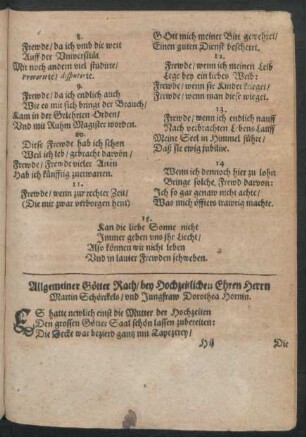 8.
Frewde/ da ich vmb die weit
Auff der Universität
Mit noch andern viel studirte/
Præparirte/ disputirte.
9.
Frewde/ da ich endlich auch
Wie es mit sich bringt der Brauch/
Kam in der Gelehrten Orden/
Vnd mit Ruhm Magister worden.
10.
Diese Frewde hab ich schon
Weil ich leb/ gebracht darvon/
Frewde/ Frewde vieler Arten
Hab ich künfftig zuerwarten.
11.
Frewde/ wenn zur rechter Zeit/
(Die mir zwar verborgen heut)
GOtt mich meiner Bitt gewehret/
Einen guten Dienst bescheret.
12.
Frewde/ wenn ich meinen Leib
Lege bey ein liebes Weib:
Frewde/ wenn sie Kinder krieget/
Frewde/ wenn man diese wieget.
13.
Frewde/ wenn ich endlich nauff
Nach verbrachten Lebens Lauff
Meine Seel in Himmel führe/
Daß sie ewig jubilire.
14
Wenn ich dennoch hier zu lohn
Bringe solche Frewd darvon:
Ich so gar genaw nicht achte/
Was mich öffters trawrig machte.
15.
Kan die liebe Sonne nicht
Immer geben vns ihr Liecht/
Also können wir nicht leben
Vnd in lauter Frewden schweben.
Allgemeiner Götter Rath/ bey Hochzeitlichen Ehren Herrn
Martin Schörckels/ vnd Jungfraw Dorothea Hornin.
ES hatte newlich einst die Mutter der Hochzeiten
Den grossen Götter Saal schön lassen zubereiten:
Die Decke war bezierd gantz mit Tapezerey/
Die